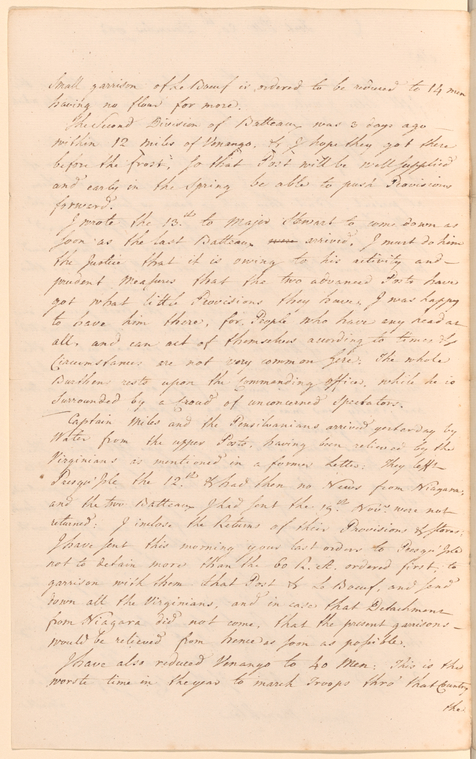 Small garrison of Le Boeuf is ordered to be reduced to 14 men
having no flour for more.
The Second Division of Batteaux was 3 days ago
within 12 miles of Venango, & I hope they got there
before the frost; So that Post will be well supplied
and early in the Spring be able to push Provisions
forward.
I wrote the 13.th to Major Stewart to come down as
soon as the last Batteaux arrived. I must do him
the Justice that it is owing to his activity and
prudent Measures that the two advanced Posts have
got what little Provisions they have. I was happy
to have him there, for People who have any head at
all, and can act of themselves according to times &
Circumstances are not very common here: The whole
Burthen rests upon the Commanding officer, while he is
surrounded by a Croud of unconcerned Spectators.
Captain Miles and the Pensilvanians arrived yesterday by
Water from the upper Posts, having been relieved by the
Virginians as mentioned in a former Letter: They left
Presqu'Isle the 12.th & had then no News from Niagara;
and the two Batteaux I had sent the Nov.r were not
returned: I inclose the Returns of their Provisions & Stores.
I have sent this morning your last orders to Presqu'Isle
not to retain more than the 60 R. A. ordered first, to
garrison with them that Post & Le Boeuf, and send
down all the Virginians, and in case that Detachment
from Niagara did not come, that the present garrisons
would be relieved from hence as soon as possible.
I have also reduced Venango to 40 Men: This is the
worste time in the year to march Troops thro' that Country
the